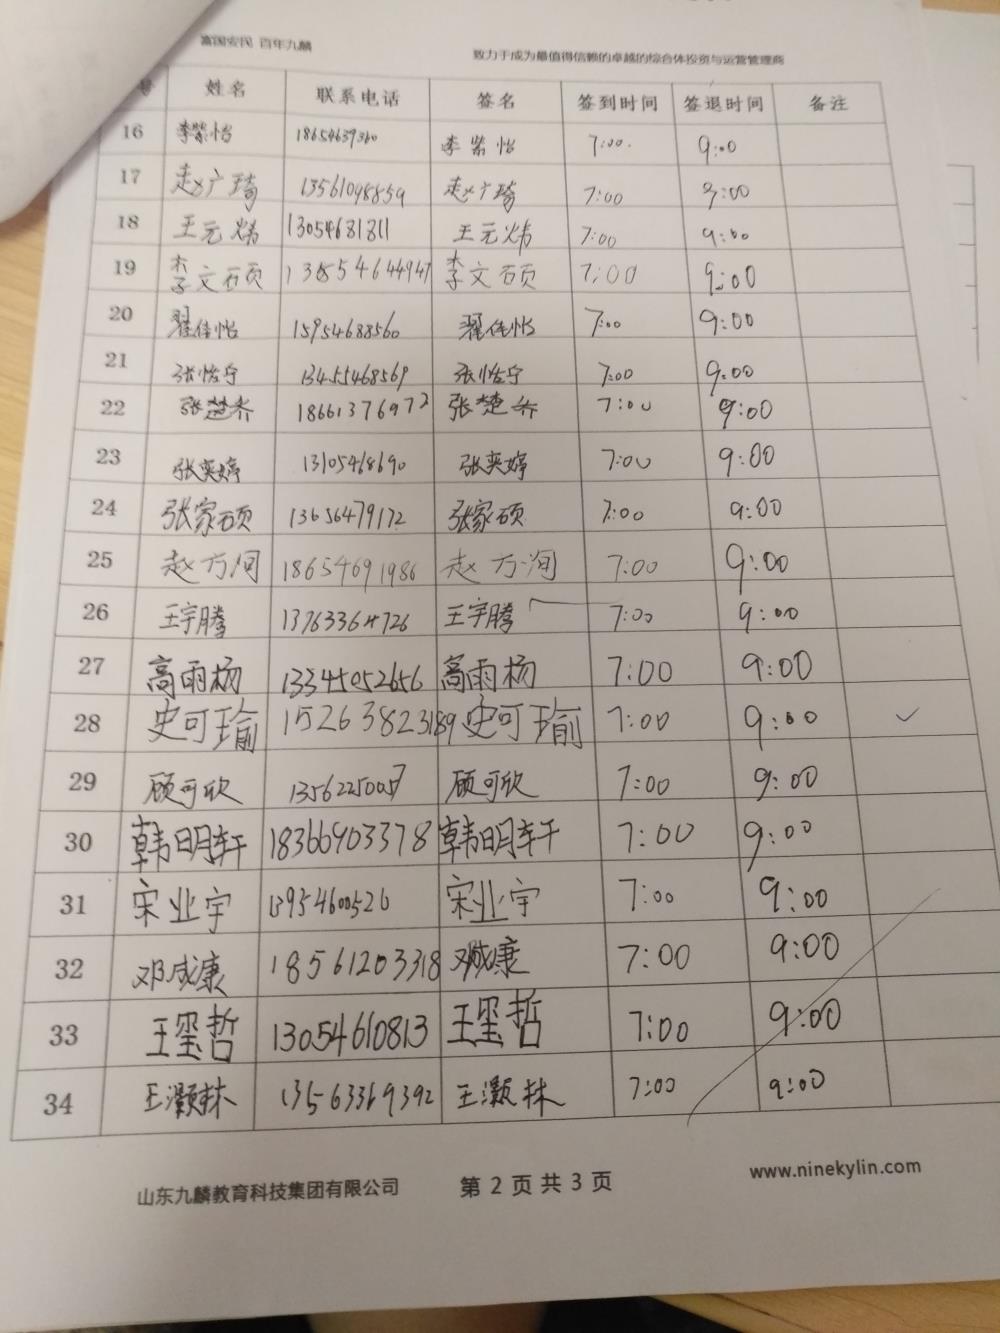 富国安民 百年九麟
致力于成为最值得信赖的卓越的综合体投资与运营管理商
号 姓名 联系电话 签名 签到时间 签退时间 备注
16 李紫怡 18654639360 李紫怡 7:00. 9:00
17 赵广琦 13561098859 赵广琦 7:00 9:00
18 王元炜 13054681811 王元炜 7:00 9:00
19 李文硕 13854644947 李文硕 7:00 9:00
20 翟佳怡 15954688560 翟佳怡 7:00 9:00
21 张怡宁 13455468569 张怡宁 7:00 9:00
22 张楚乔 18661376972 张楚乔 7:00 9:00
23 张奕婷 13105468690 张奕婷 7:00 9:00
24 张家硕 13656479172 张家硕 7:00 9:00
25 赵方洵 18654691986 赵方洵 7:00 9:00
26 王宇腾 13763364726 王宇腾 7:00 9:00
27 高雨杨 13345052656 高雨杨 7:00 9:00
28 史可瑜 15263823189 史可瑜 7:00 9:00 ✓
29 顾可欣 13562250057 顾可欣 7:00 9:00
30 韩明轩 18366903378 韩明轩 7:00 9:00
31 宋业宇 13954600526 宋业宇 7:00 9:00
32 邓咸康 18561203318 邓咸康 7:00 9:00
33 王玺哲 13054610813 王玺哲 7:00 9:00
34 王灏林 13563369392 王灏林 7:00 9:00
山东九麟教育科技集团有限公司 第 2 页 共 3 页 www.ninekylin.com